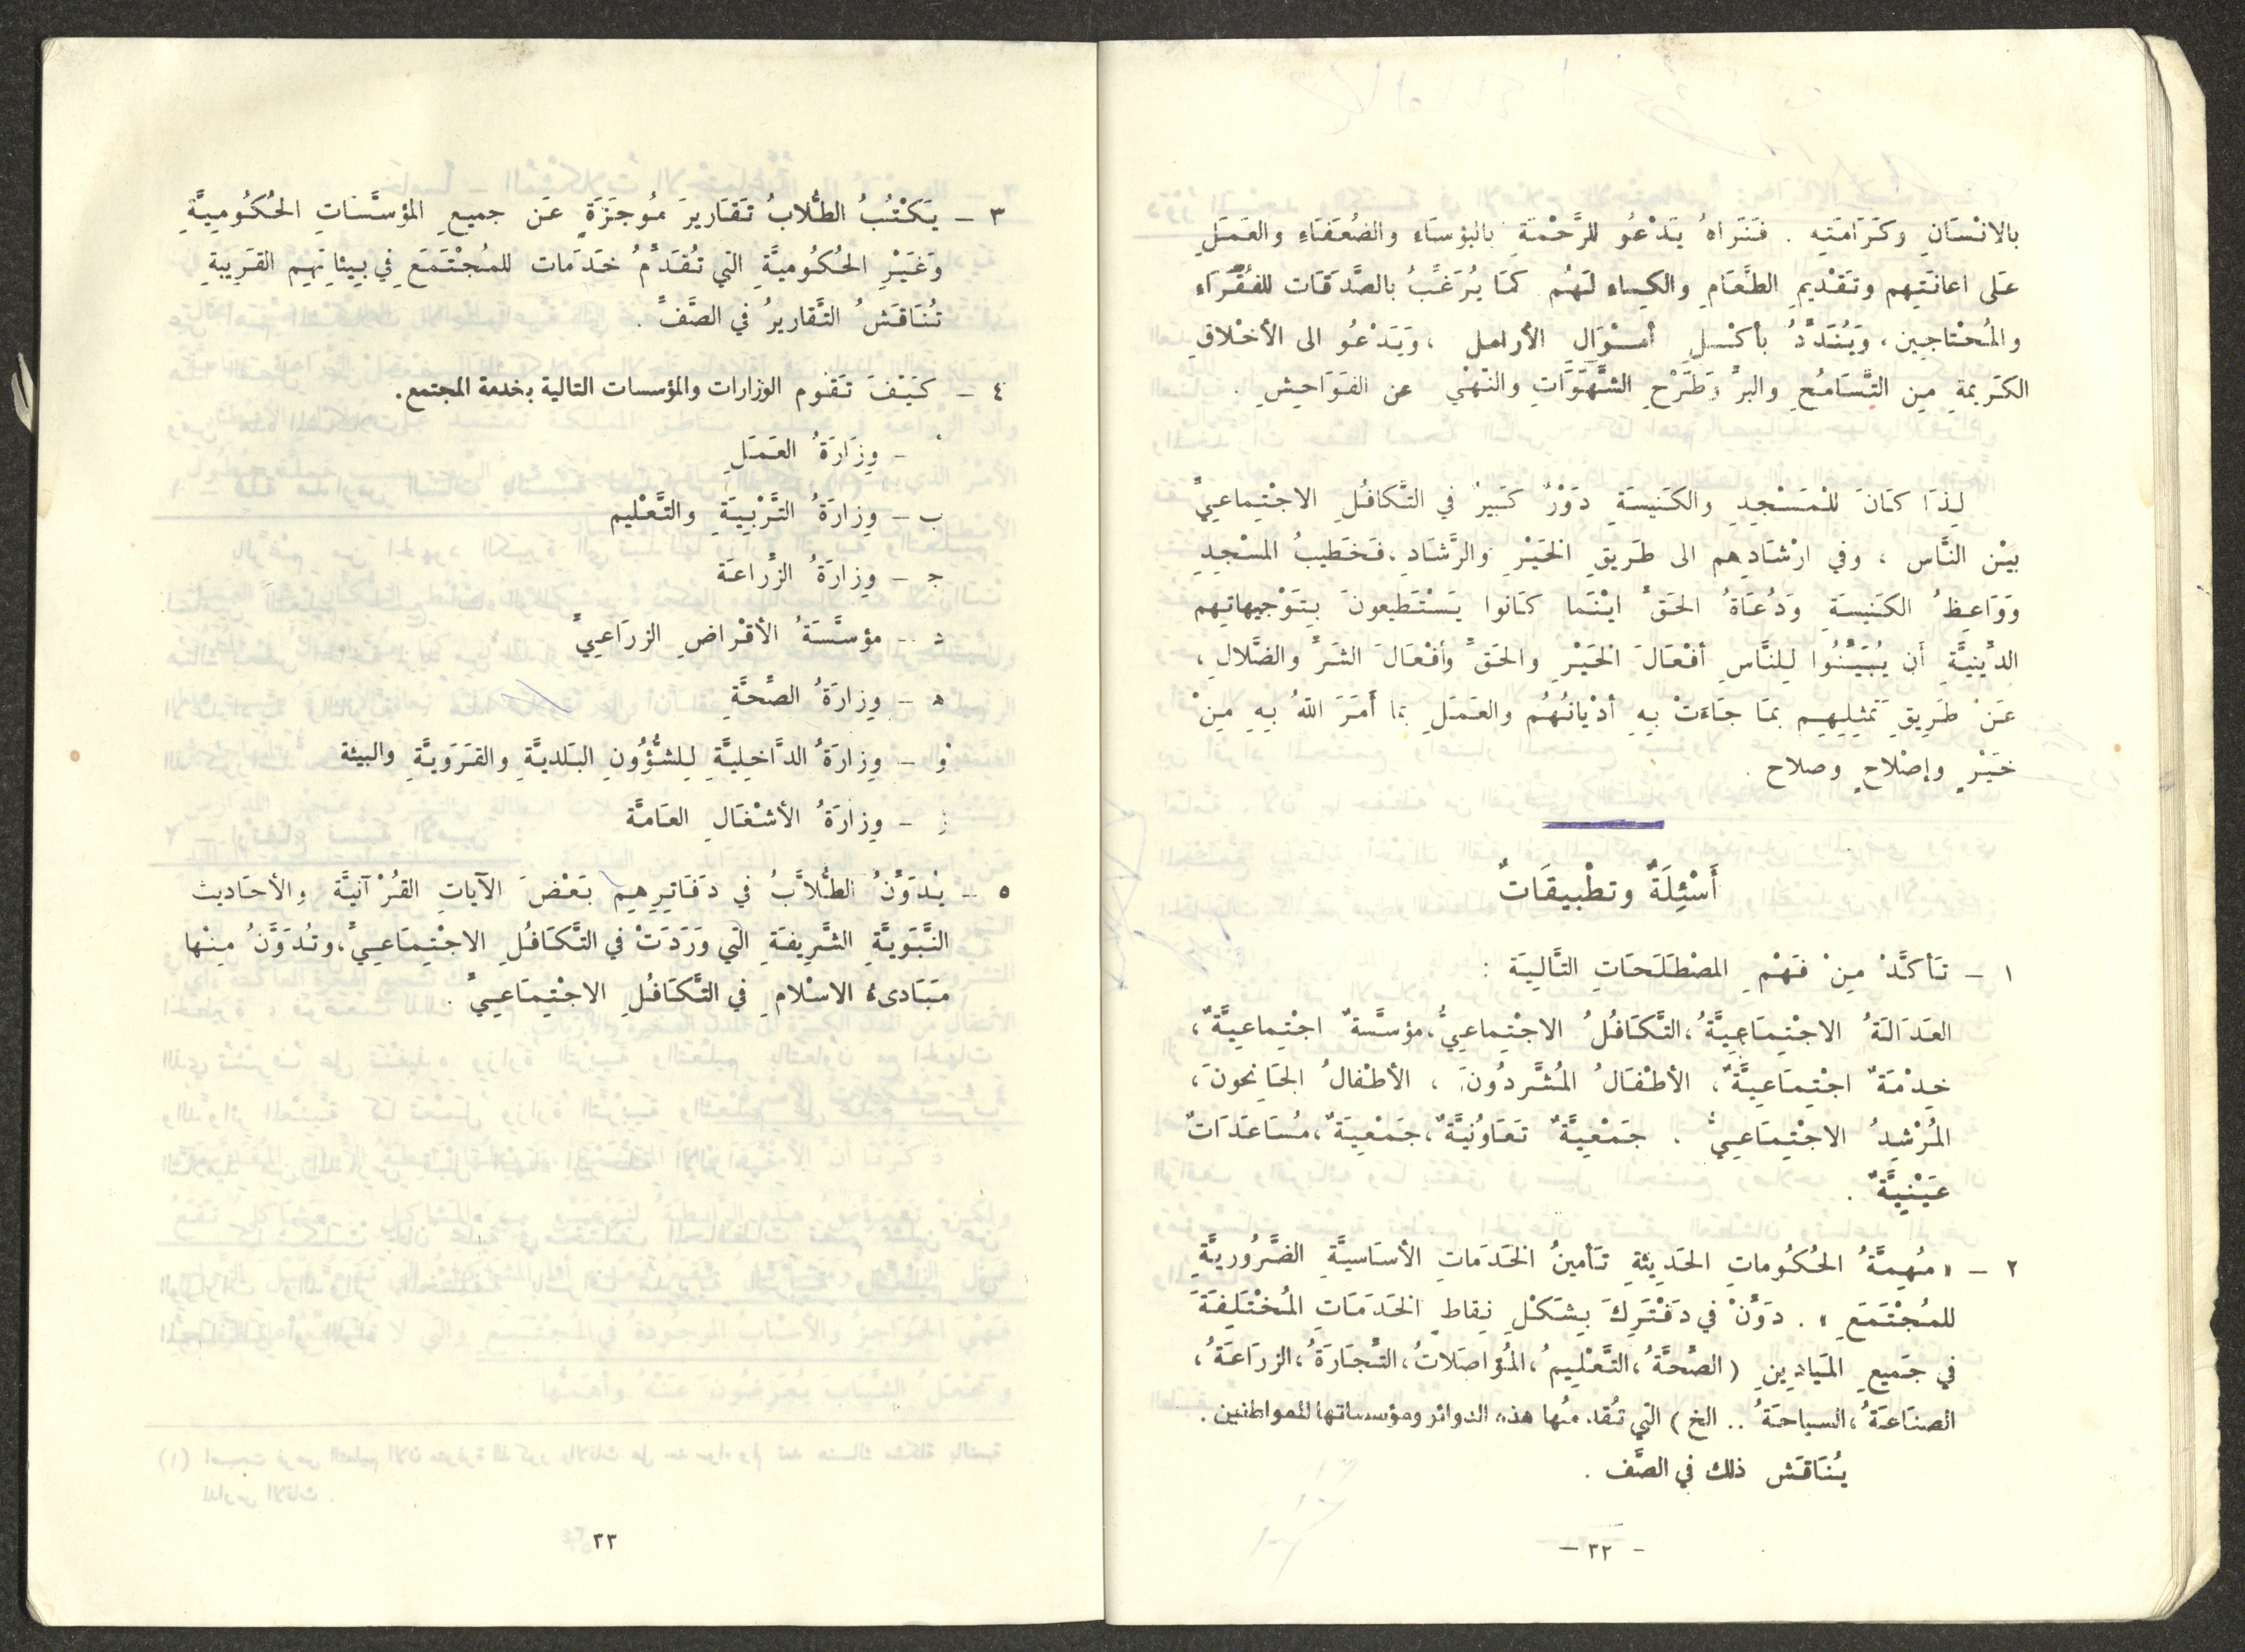 بالانْسَانِ وكَرَامَتِه . فَنَراهُ يَدْعُو للرَّحْمَةِ بالبؤسَاءِ والضُعَفَاءِ والعَمَلِ
عَلى اعانَتِهم وتَقْديمِ الطَّعَامِ والكِساء لَهُم كَمَا يُرَغِّبُ بالصَّدَقَات للفُقَرَاء
والمُحْتاجين، وَيُنَدِّدُ بأكْلِ أمْوَالِ الأرامل ، وَيَدْعُو الى الأخْلاقِ
الكَريمةِ مِن التَّسَامُحِ والبرِّ وَطَرْحِ الشَّهَوَاتِ والنَهْيِ عن الفَوَاحِشِ .
لِذَا كَانَ للْمَسْجِدِ والكَنيسَةِ دَوْرٌ كَبيرٌ في التَّكافُلِ الاجْتِماعِيِّ
بيْن النَّاس ، وفي ارْشَادِهم الى طَريقِ الخَيْرِ والرَّشَادِ، فَخَطيبُ المسْجِدِ
وَوَاعِظُ الكَنيسَةِ وَدُعَاةُ الحَقِّ ايْنَما كَانوا يَسْتَطيعونَ بِتَوْجيهاتِهم
الدِّينيَّةِ أَن يُبَيِّنُوا لِلنَّاسِ أفْعَالَ الخَيْرِ والحَقِّ وأفْعَالَ الشَرِّ والضَّلالِ ،
عَنْ طَرِيقِ تَمثِيلِهِم بمَا جَاءَتْ بِهِ أدْيانُهُم والعَمَلِ بما أَمَرَ اللهُ بِهِ مِنْ
خَيْرٍ وإصْلاحٍ وصلاح .
أَسْئِلَةٌ وتطْبيقَاتٌ
١ – تَأكَّدْ مِنْ فَهْمِ المصْطَلَحَاتِ التَّالِيَة :
العَدَالَةُ الاجْتِمَاعِيَّةُ، التَّكَافُلُ الاجْتِماعِيُّ، مؤسَّسةٌ اجْتِماعِيَّةٌ ،
خِدْمَةٌ اجْتِمَاعِيَّةٌ، الأطْفَالُ المُشَّردُونَ ، الأطْفالُ الجَانِحونَ ،
المُرْشِدُ الاجْتِمَاعِيُّ . جَمْعِيَّةٌ تَعَاوُنِيَّةٌ، جَمْعِيَةٌ، مُسَاعَدَاتٌ
عَيْنِيَّةٌ .
٢ – « مُهِمَّةُ الحُكُوماتِ الحَدِيثةِ تَأمينُ الخَدَماتِ الأسَاسيَّةِ الضَّرُوريَّةِ
للمُجْتَمَعِ » . دَوِّنْ في دَفْتَرِكَ بِشَكْلِ نِقاطٍ الخَدَمَاتِ المُخْتَلِفَةَ
في جَميعِ المَيادِينِ ( الصِّحَّةُ، التَّعْلِيمُ، المُواصَلاتُ، التِّجَارَةُ، الزرَاعَةُ ،
الصنَاعَةُ، السياحَةُ .. الخ ) التي تُقدمُها هذه الدوائر ومؤسساتها للمواطنين .
يُنَاقَش ذلك في الصَّف .
– ٣٢ –
٣ – يَكْتُبُ الطُّلابُ تَقَاريرَ مُوجَزَةٍ عَن جميعِ المؤسَّسَاتِ الحُكُوميَّةِ
وَغَيْرِ الحُكُوميَّةِ التي تُقَدِّمُ خَدَمات للمُجْتَمَعِ في بِيئاتِهِم القَرِيبةِ
تُنَاقَشُ التَّقاريرُ في الصَّفِّ .
٤ – كَيْفَ تَقوم الوزارات والمؤسسات التالية بخدمة المجتمع.
أ – وِزَارَةُ العَمَلِ
ب – وِزارَةُ التَّرْبِيَةِ والتَّعْليم
ج – وِزارَةُ الزِّراعَة
د – مؤسَّسَةُ الأقْراضِ الزرَاعِيِّ
ه – وِزارَةُ الصِّحَّةِ
و – وِزارَةُ الدَّاخِليَّةِ لِلشُّؤُونِ البَلديَّةِ والقَرَويَّةِ والبيئة
ز – وِزارَةُ الأشْغَالِ العَامَّة
٥ – يُدَوِّنُ الطُّلاَّبُ في دَفَاتِرِهِم بَعْضَ الآياتِ القُرْآنيَّة والأحَاديث
النَّبَويَّةِ الشَّريفَةِ التي وَرَدَتْ في التَّكَافُلِ الاجْتِمَاعِيِّ، وتُدَوَّنُ مِنْها
مَبَادىءُ الاسْلامِ في التَّكَافُلِ الاجْتِمَاعِيِّ .
٣٣